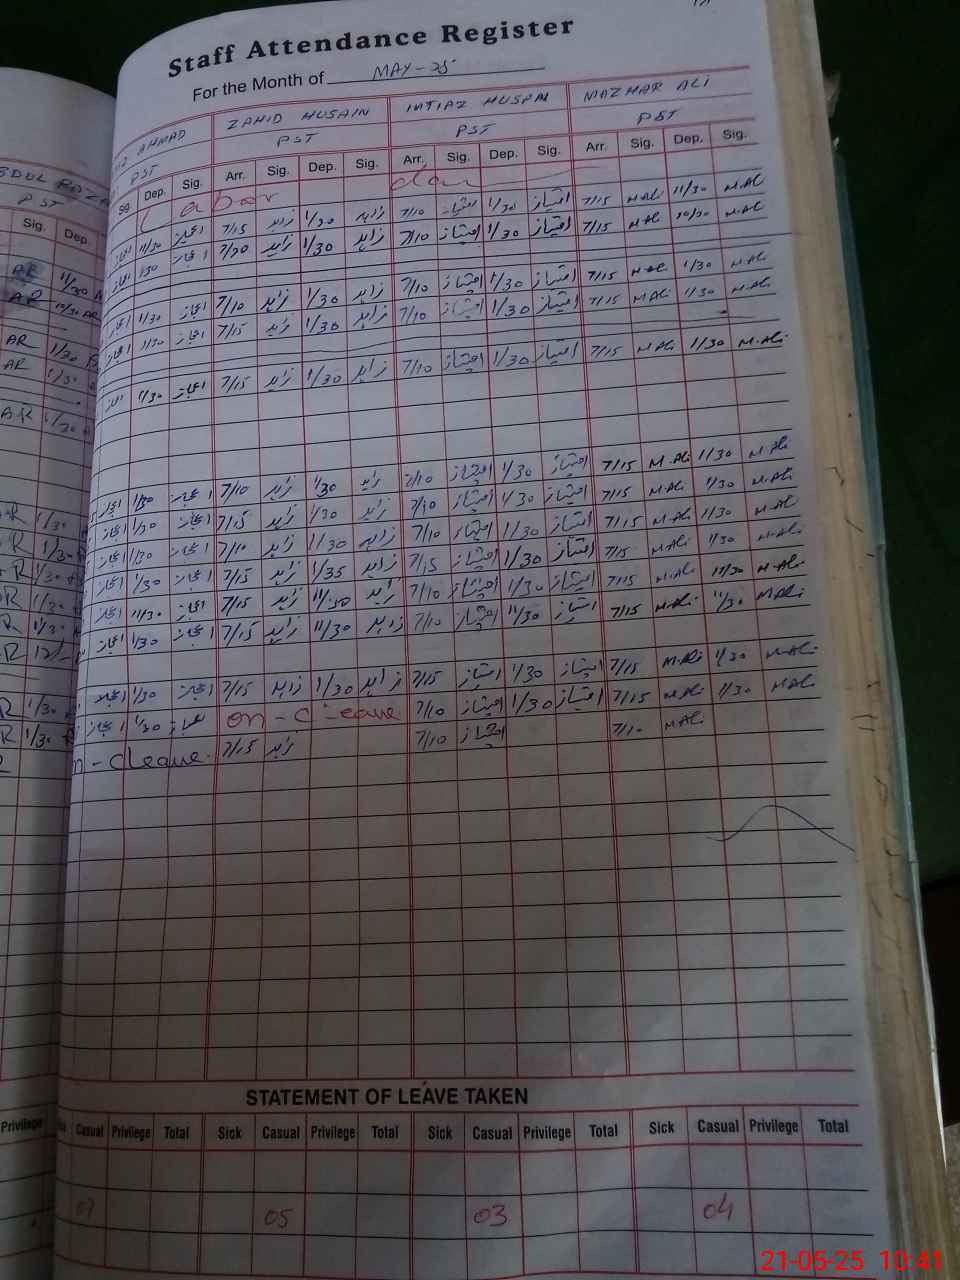 Staff Attendance Register
For the Month of MAY-25
AHMAD ZAHID HUSAIN IMTIAZ HUSAIN MAZHAR ALI
PST PST PST PST
Sig. Dep. Sig. Arr. Sig. Dep. Sig. Arr. Sig. Dep. Sig. Arr. Sig. Dep. Sig.
Labor day
11/30 اعجاز 7/15 زاہد 1/30 زاہد 7/10 امتیاز 1/30 امتیاز 7/15 M.Ali 11/30 M.Ali
1/30 اعجاز 7/20 زاہد 1/30 زاہد 7/10 امتیاز 1/30 امتیاز 7/15 M.Ali M.Ali
اعجاز 1/30 اعجاز 7/10 زاہد 1/30 زاہد 7/10 امتیاز 1/30 امتیاز 7/15 M.Ali 1/30 M.Ali
اعجاز 11/30 اعجاز 7/15 زاہد 1/30 زاہد 7/10 امتیاز 1/30 امتیاز 7/15 M.Ali 1/30 M.Ali
اعجاز 1/30 اعجاز 7/15 زاہد 1/30 زاہد 7/10 امتیاز 1/30 امتیاز 7/15 M.Ali 1/30 M.Ali
اعجاز 1/30 اعجاز 7/10 زاہد 1/30 زاہد 7/10 امتیاز 1/30 امتیاز 7/15 M.Ali 1/30 M.Ali
اعجاز 1/30 اعجاز 7/15 زاہد 1/30 زاہد 7/10 امتیاز 1/30 امتیاز 7/15 M.Ali 1/30 M.Ali
اعجاز 1/30 اعجاز 7/10 زاہد 1/30 زاہد 7/10 امتیاز 1/30 امتیاز 7/15 M.Ali 1/30 M.Ali
اعجاز 1/30 اعجاز 7/15 زاہد 1/35 زاہد 7/15 امتیاز 1/30 امتیاز 7/15 M.Ali 1/30 M.Ali
اعجاز 11/30 اعجاز 7/15 زاہد 11/30 زاہد 7/10 امتیاز 1/30 امتیاز 7/15 M.Ali 11/30 M.Ali
اعجاز 1/30 اعجاز 7/15 زاہد 11/30 زاہد 7/10 امتیاز 11/30 امتیاز 7/15 M.Ali 11/30 M.Ali
اعجاز 1/30 اعجاز 7/15 زاہد 1/30 زاہد 7/15 امتیاز 1/30 امتیاز 7/15 M.Ali 1/30 M.Ali
اعجاز 1/30 اعجاز on-C-leave 7/10 امتیاز 1/30 امتیاز 7/15 M.Ali 1/30 M.Ali
on-Cleave 7/15 زاہد 7/10 امتیاز 7/10 M.Ali
STATEMENT OF LEAVE TAKEN
Privilege Sick Casual Privilege Total Sick Casual Privilege Total Sick Casual Privilege Total Sick Casual Privilege Total
07 05 03 04
21-05-25 10:41